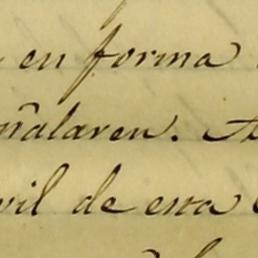 en forma
ñalaren. A
vil de esta